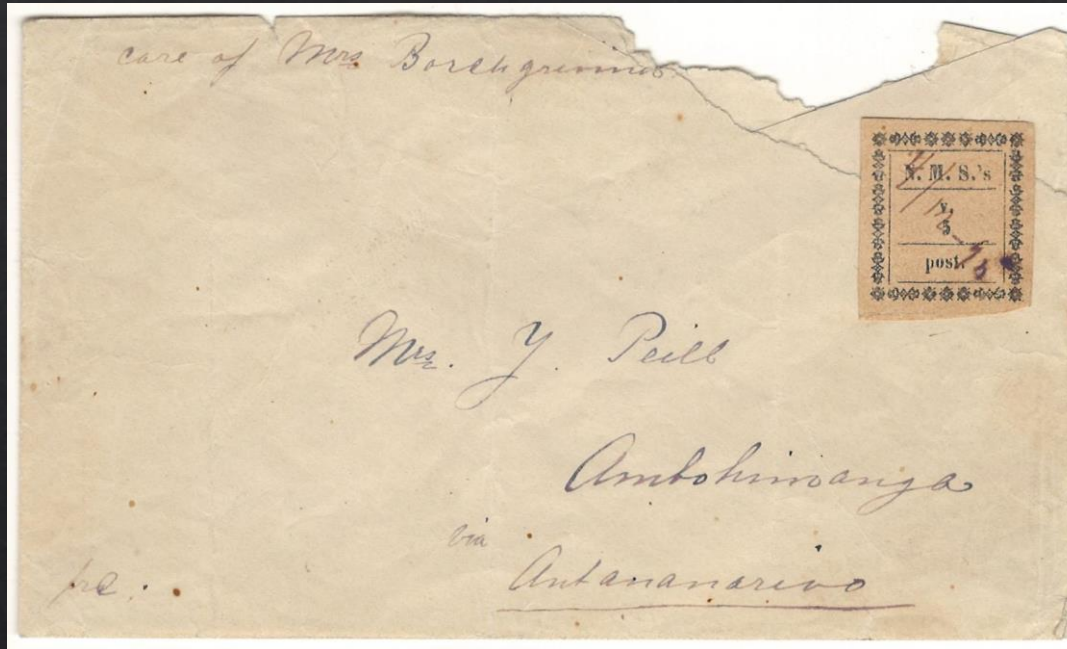 care of Mrs Borchgrevink
N. M. S.'s
post.
Mrs. J. Peill
Ambohimanga
via
Antananarivo